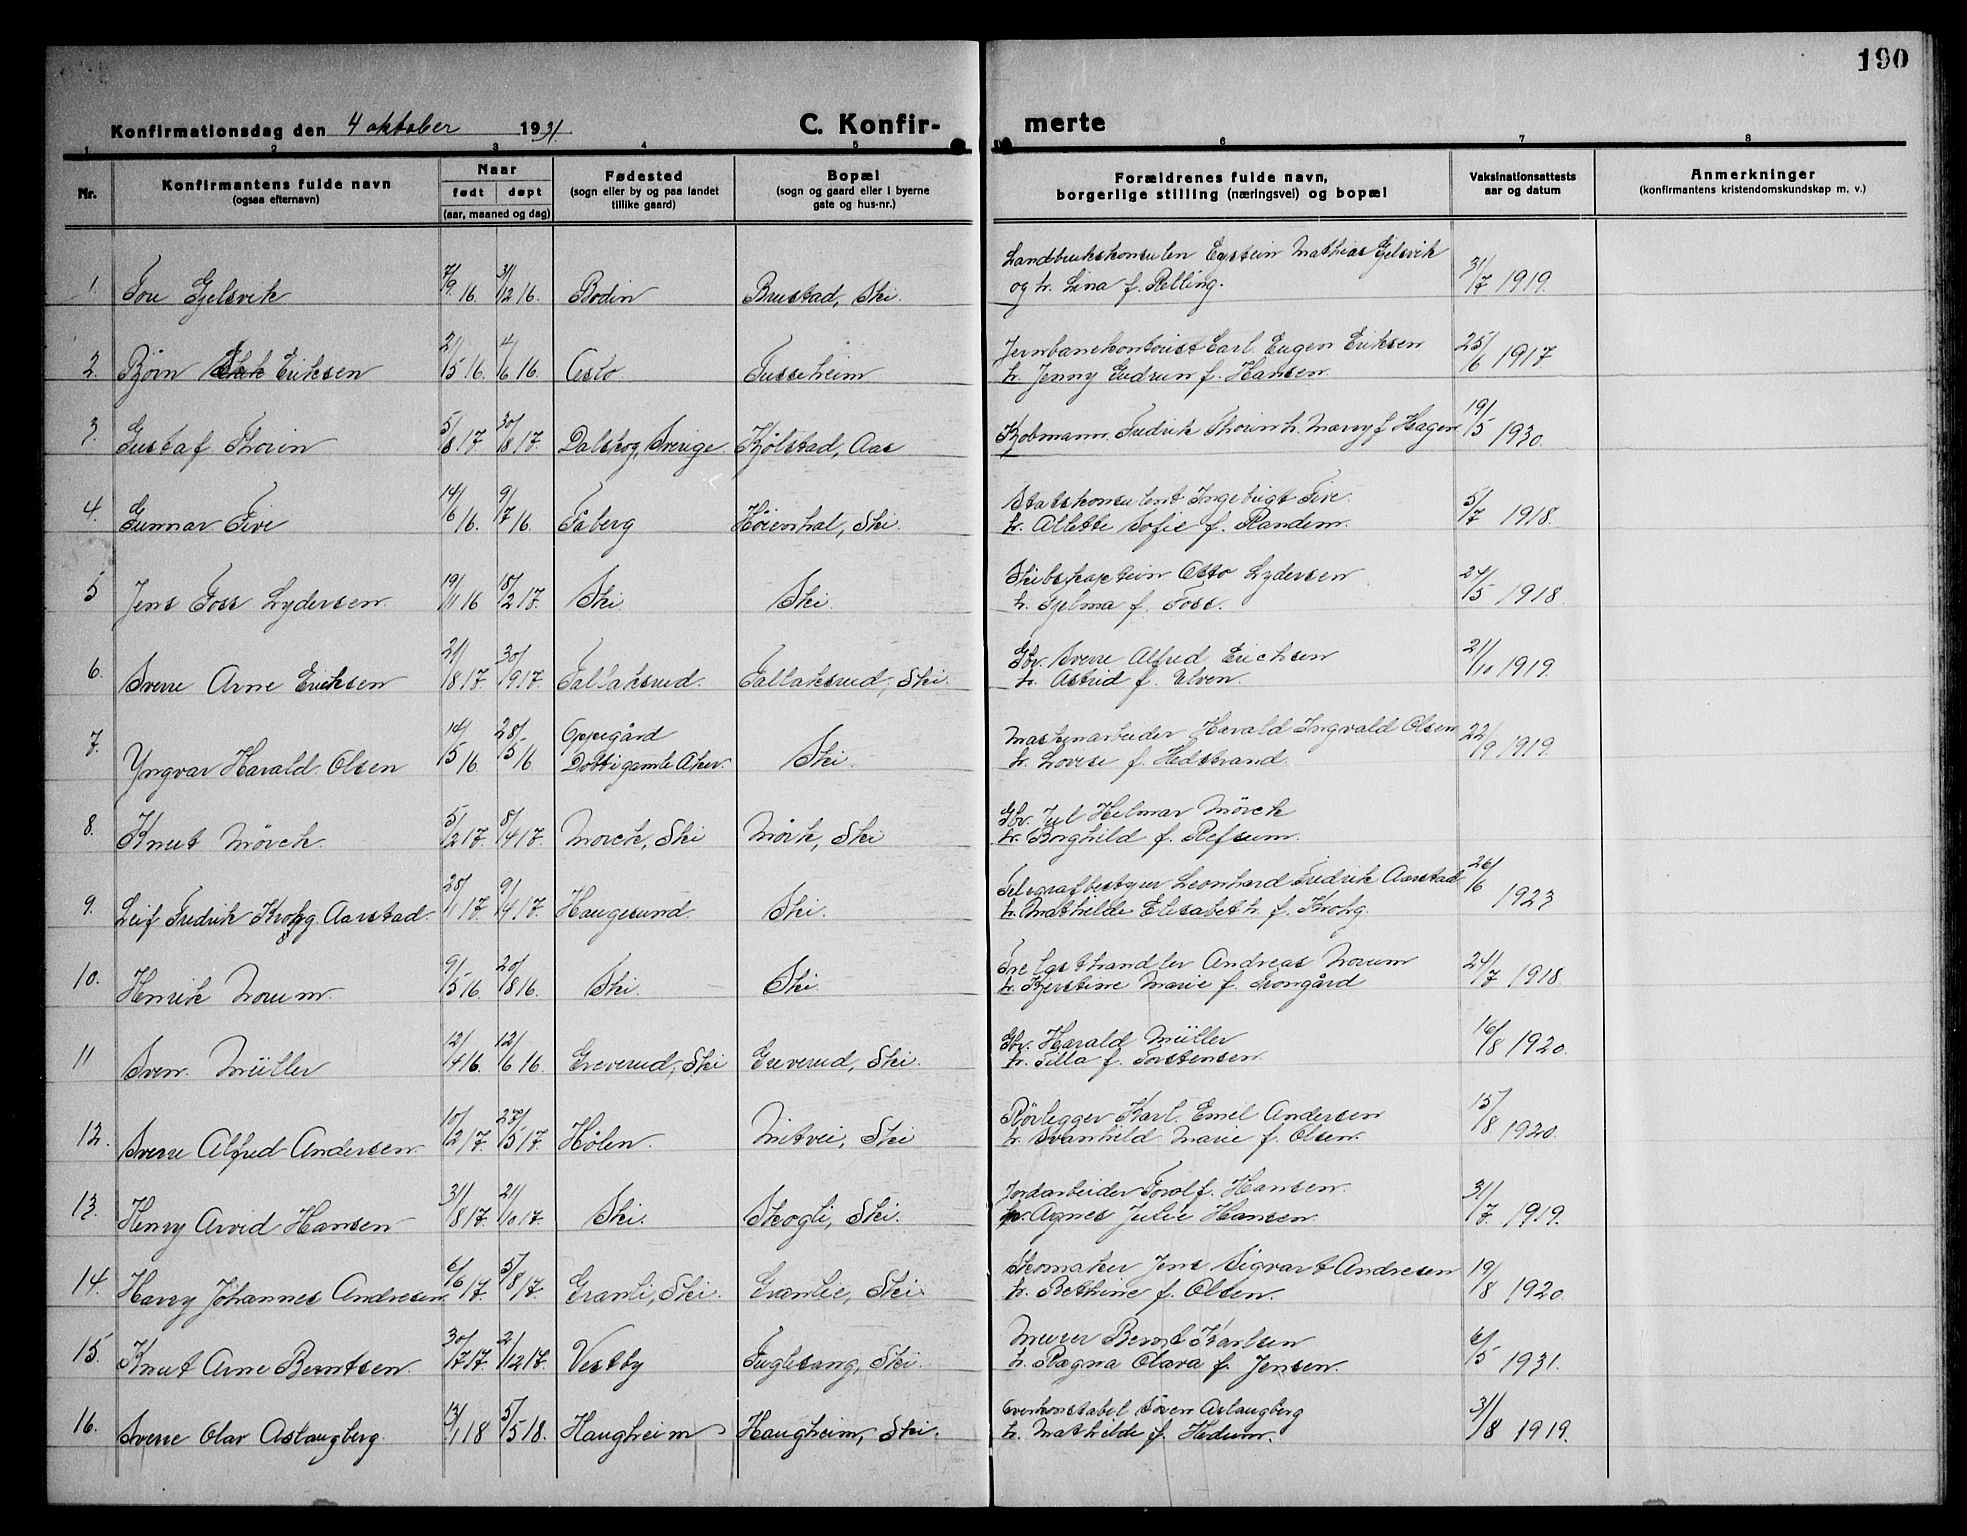 190
Konfirmationsdag den 4 oktober 1931.
C. Konfir-
merte
1 2 3 4 5 6 7 8
Nr.
Konfirmantens fulde navn
(ogsaa efternavn)
Naar
født døpt
(aar, maaned og dag)
Fødested
(sogn eller by og paa landet
tillike gaard)
Bopæl
(sogn og gaard eller i byerne
gate og hus-nr.)
Forældrenes fulde navn,
borgerlige stilling (næringsvei) og bopæl
Vaksinationsattests
aar og datum
Anmerkninger
(konfirmantens kristendomskundskap m. v.)
Landbrukskonsulen Eystein Mathias Gjelsvik
1. Tore Gjelsvik 7/9 16. 31/12 16. Bodin Brustad, Ski. og h. Lina f. Relling. 31/7 1919.
Jernbanekontorist Carl Eugen Eriksen
2. Bjørn Eriksen 21/5 16. 4/6 16. Oslo. Tusseheim h. Jenny Gudrun f. Hansen. 25/6 1917
3. Gustaf Thorin 5/8 17 30/8 17. Dalskog, Sverige Kjølstad, Aas Kjøbmann Fredrik Thorin h. Marry f Hagen 19/5 1930.
Statskonsulent Ingebrigt Five.
4. Gunnar Five 14/6 16. 9/7 16. Fåberg Høienhal, Ski. h. Allette Sofie f. Randem. 5/7 1918.
Skibskaptein Otto Lydersen
5 Jens Foss Lydersen. 19/11 16 18/2 17. Ski. Ski. h. Hjelma f. Foss. 24/5 1918.
Gbr. Sverre Alfred Erichsen
6. Sverre Arne Eriksen 21/8 17. 30/9 17. Tallaksrud. Tallaksrud, Ski. h. Astrid f. Elven. 21/10 1919.
Oppegård
Maskinarbeider Harald Ingvald Olsen
7. Yngvar Harald Olsen 14/5 16. 28/5 16 Døtt i gamle Aker. Ski. h. Lovise f. Hedstrand. 22/9 1919.
Gbr. Jul Helmar Mörck
8. Knut Mörck. 5/2 17. 8/4 17. Mörck, Ski Mörk, Ski h. Borghild f. Refsum.
Telegrafbestyrer Leonhard Fredrik Aarstad
9. Leif Fredrik Krohg Aarstad 28/1 17. 9/4 17. Haugesund. Ski. h. Mathilde Elisabeth f. Krohg. 26/6 1923
Trelasthandler Andreas Norum
10. Henrik Norum. 9/5 16. 20/8 16. Ski. Ski. h. Kjerstine Marie f. Trongård 24/7 1918.
Gbr. Harald Müller
11 Sven. Müller 12/4 16. 12/6 16. Greverud, Ski Greverud, Ski. h. Tilla f. Torstensen. 16/8 1920.
Rørlegger Karl Emil Andersen
12. Sverre Alfred Andersen. 10/2 17. 27/5 17. Hølen. Mitvei, Ski h. Svanhild Marie f. Olsen. 15/8 1920.
Jordarbeider Torolf. Hansen.
13. Henry Arvid Hansen 31/8 17. 21/10 17. Ski. Skogli, Ski. h. Agnes Julie Hansen. 31/7 1919.
Skomaker Jens Sigvart Andresen
14. Harry Johannes Andresen. 6/6 17. 5/8 17. Granli, Ski. Granlie, Ski. h. Bethine f. Olsen. 19/8 1920.
Murer Bernt Karlsen
15. Knut Arne Berntsen. 30/7 17. 2/12 17. Vestby Fuglesang, Ski. h. Ragna Olava f. Jensen. 6/5 1931.
Overkonstabel Søren Aslaugberg
16. Sverre Olav Aslaugberg. 13/1 18 5/5 18. Haugheim Haugheim, Ski. h. Mathilde f. Hedum. 31/8 1919.